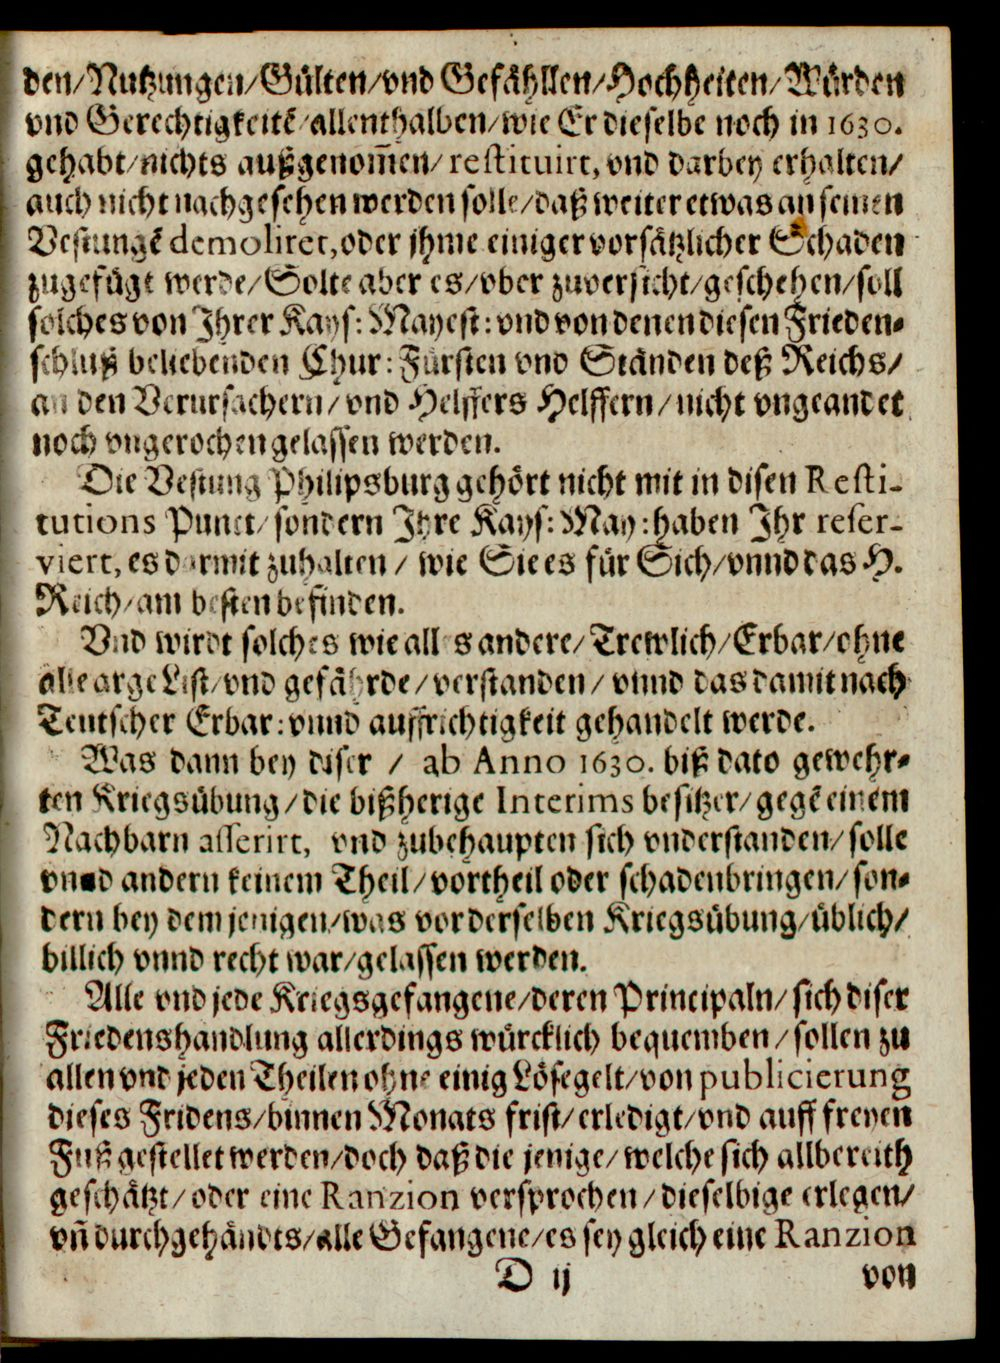 den/Nutzungen/Gülten/vnd Gefählleu/Hochheiten/Würden
vnd Gerechtigkeitē/allenthalben/wie Er dieselbe noch in 1630.
gehabt/nichts außgenom̃en/restituirt, vnd darbey erhalten/
auch nicht nachgesehen werden solle/daß weiter etwas an seinen
Vestungē demoliret, oder jhme einiger vorsätzlicher Schaden
zugefügt werde/Solte aber es/vber zuversicht/geschehen/soll
solches von Jhrer Kays: Mayest: vnd von denen diesen Frieden-
schluß beliebenden Chur: Fürsten vnd Ständen deß Reichs/
an den Verursachern/vnd Helffers Helffern/nicht vngeandet
noch vngerochen gelassen werden.
Die Vestung Philipsburg gehört nicht mit in disen Resti-
tutions Punct/sondern Jhre Kays: May: haben Jhr reser-
viert, es darmit zuhalten/wie Sie es für Sich/vnnd das H.
Reich/am besten befinden.
Vnd wirdt solches wie alles andere/Trewlich/Erbar/ohne
alle arge List/vnd gefährde/verstanden/vnnd das damit nach
Teutscher Erbar: vnnd auffrichtigkeit gehandelt werde.
Was dann bey diser/ab Anno 1630. biß dato gewehr-
ten Kriegsübung/die bißherige Interims besitzer/gegē einem
Nachbarn asserirt, vnd zubehaupten sich vnderstanden/solle
vnnd andern keinem Theil/vortheil oder schaden bringen/son-
dern bey dem jenigen/was vor derselben Kriegsübung/üblich/
billich vnnd recht war/gelassen werden.
Alle vnd jede Kriegsgefangene/deren Principaln/sich diser
Friedenshandlung allerdings würcklich bequemben/sollen zu
allen vnd jeden Theilen ohne einig Lösegelt/von publicierung
dieses Fridens/binnen Monats frist/erledigt/vnd auff freyen
Fuß gestellet werden/doch daß die jenige/welche sich allbereith
geschätzt/oder eine Ranzion versprochen/dieselbige erlegen/
vn̄ durchgehändts/alle Gefangene/es sey gleich eine Ranzion
D ij
von